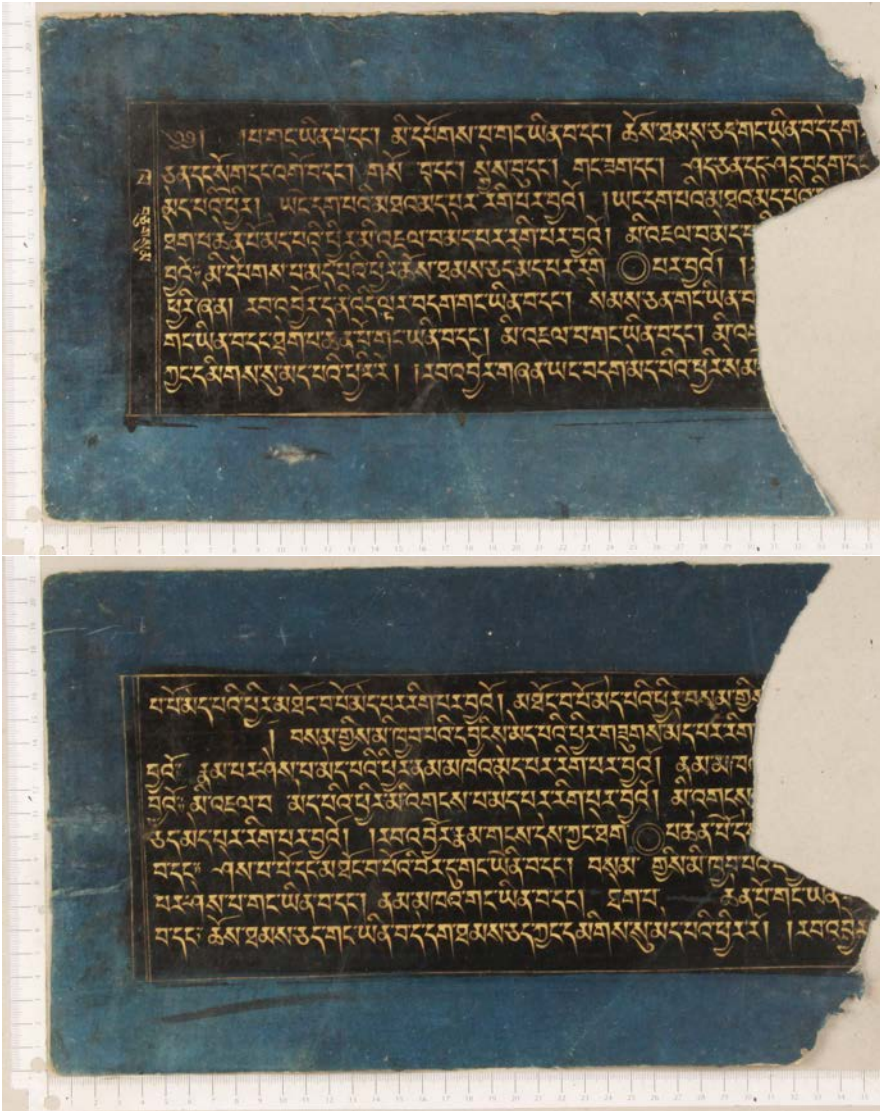 ༄༅། །པ་གང་ཡིན་པ་དང། མི་དམིགས་པ་གང་ཡིན་བ་དང། ཆོས་ཐམས་ཅད་གང་ཡིན་བ་དེ་དག
ཅན་དང་སྲོག་དང་འགྲོ་བ་དང། གསོ་ བ་དང། སྐྱེས་བུ་དང། གང་ཟག་དང། ཤེད་ཅན་དང་ཤེད་བདག་དང
མེད་པའི་ཕྱིར། ཡང་དག་པའི་མཐའ་མེད་པར་རིག་པར་བྱའོ། །ཡང་དག་པའི་མཐའ་མེད་པའི་ཕྱིར
ཐེག་པ་ཆེན་པོ་མེད་པའི་ཕྱིར་མི་འཇལ་བ་མེད་པར་རིག་པར་བྱའོ། མི་འཇལ་བ་མེད་པ
བྱའོ༔ མི་དམིགས་པ་མེད་པའི་ཕྱིར་ཆོས་ཐམས་ཅད་མེད་པར་རིག པར་བྱའོ། །
ཕྱིར་ཞེ་ན། རབ་འབྱོར་དེ་ནི་འདི་ལྟར་བདག་གང་ཡིན་བ་དང། སེམས་ཅན་གང་ཡིན་བ
གང་ཡིན་བ་དང་ཐེག་པ་ཆེན་པོ་གང་ཡིན་བ་དང། མི་འཇལ་བ་གང་ཡིན་བ་དང། མི་འ
ཀྱང་དམིགས་སུ་མེད་པའི་ཕྱིར་རོ། །རབ་འབྱོར་གཞན་ཡང་བདག་མེད་པའི་ཕྱིར་སེམ
པ་པོ་མེད་པའི་ཕྱིར་མཐོང་བ་པོ་མེད་པར་རིག་པར་བྱའོ། མཐོང་བ་པོ་མེད་པའི་ཕྱིར་བསམ་གྱིས
། བསམ་གྱིས་མི་ཁྱབ་པའི་དབྱིངས་མེད་པའི་ཕྱིར་གཟུགས་མེད་པར་རིག
བྱའོ༔ རྣམ་པར་ཤེས་པ་མེད་པའི་ཕྱིར་ནམ་མཁའ་མེད་པར་རིག་པར་བྱའོ། ནམ་མཁ
བྱའོ༔ མི་འཇལ་བ མེད་པའི་ཕྱིར་མི་འགེངས་པ་མེད་པར་རིག་པར་བྱའོ། མི་འགེངས
ཅད་མེད་པར་རིག་པར་བྱའོ། །རབ་འབྱོར་རྣམ་གྲངས་དེས་ཀྱང་ཐེག པ་ཆེན་པོ་དེ་ས
བ་དང༔ ཤེས་པ་པོ་དང་མཐོང་བ་པོའི་བར་དུ་གང་ཡིན་བ་དང། བསམ་ གྱིས་མི་ཁྱབ་པའི་དབྱི
པར་ཤེས་པ་གང་ཡིན་བ་དང། ནམ་མཁའ་གང་ཡིན་བ་དང། ཐེག་པ ཆེན་པོ་གང་ཡིན
བ་དང༔ ཆོས་ཐམས་ཅད་གང་ཡིན་བ་དེ་དག་ཐམས་ཅད་ཀྱང་དམིགས་སུ་མེད་པའི་ཕྱིར་རོ། །རབ་འབྱོར